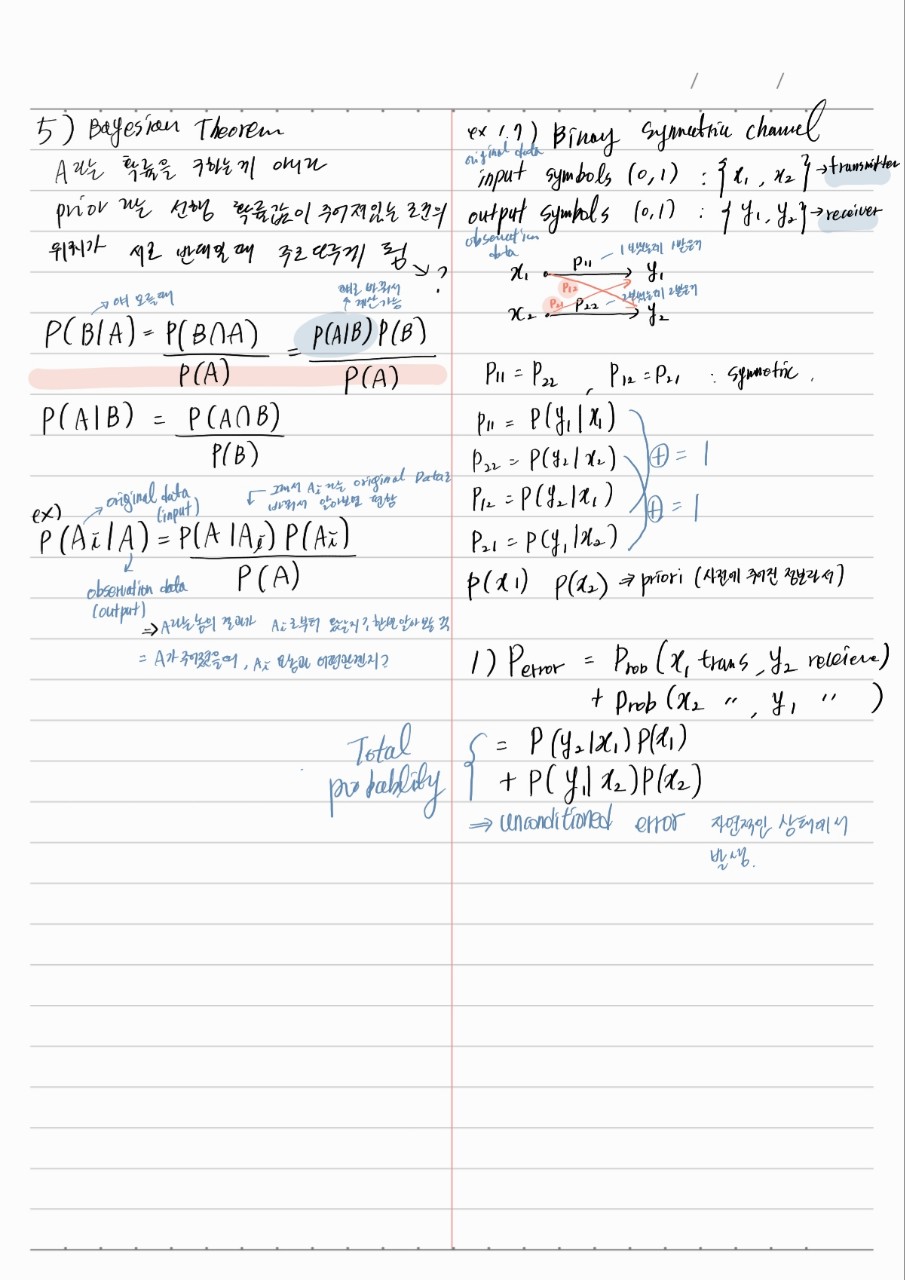 5) Bayesian Theorem
A라는 확률을 구하는게 아니라
prior 라는 선행 확률값이 주어져있는 조건의
위치가 서로 반대일때 주로 다루게 됨
↘ ?
→ 얘 모를때
얘로 바꿔서
↑ 계산가능
P(B|A) = P(B∩A) / P(A) = P(A|B)P(B) / P(A)
P(A|B) = P(A∩B) / P(B)
ex)
original data
(input)
그래서 Ai 라는 original Data로
바꿔서 알아보면 편함
P(Ai|A) = P(A|Ai)P(Ai) / P(A)
observation data
(output)
⇒ A라는놈의 결과가 Ai로부터 왔는지? 한번 알아보는 것
= A가 주어졌을때, Ai
Total
probablity
ex 1.7) Binary symmetric channel
original data
input symbols (0,1) : {x1, x2} → transmitter
output symbols (0,1) : {y1, y2} → receiver
observation
data
x1 P11 y1
1 보냈는데 1 받은거
P12
P21
x2 P22 y2
2 보냈는데 2 받은거
P11 = P22 , P12 = P21 : symmetric.
P11 = P(y1|x1)
P22 = P(y2|x2) ⊕ = 1
P12 = P(y2|x1) ⊕ = 1
P21 = P(y1|x2)
P(x1) P(x2) ⇒ priori (사전에 주어진 정보라서)
1) Perror = Prob(x1 trans, y2 receieve)
+ Prob(x2 〃 , y1 〃 )
= P(y2|x1)P(x1)
+ P(y1|x2)P(x2)
⇒ unconditioned error 자연적인 상태에서
발생.